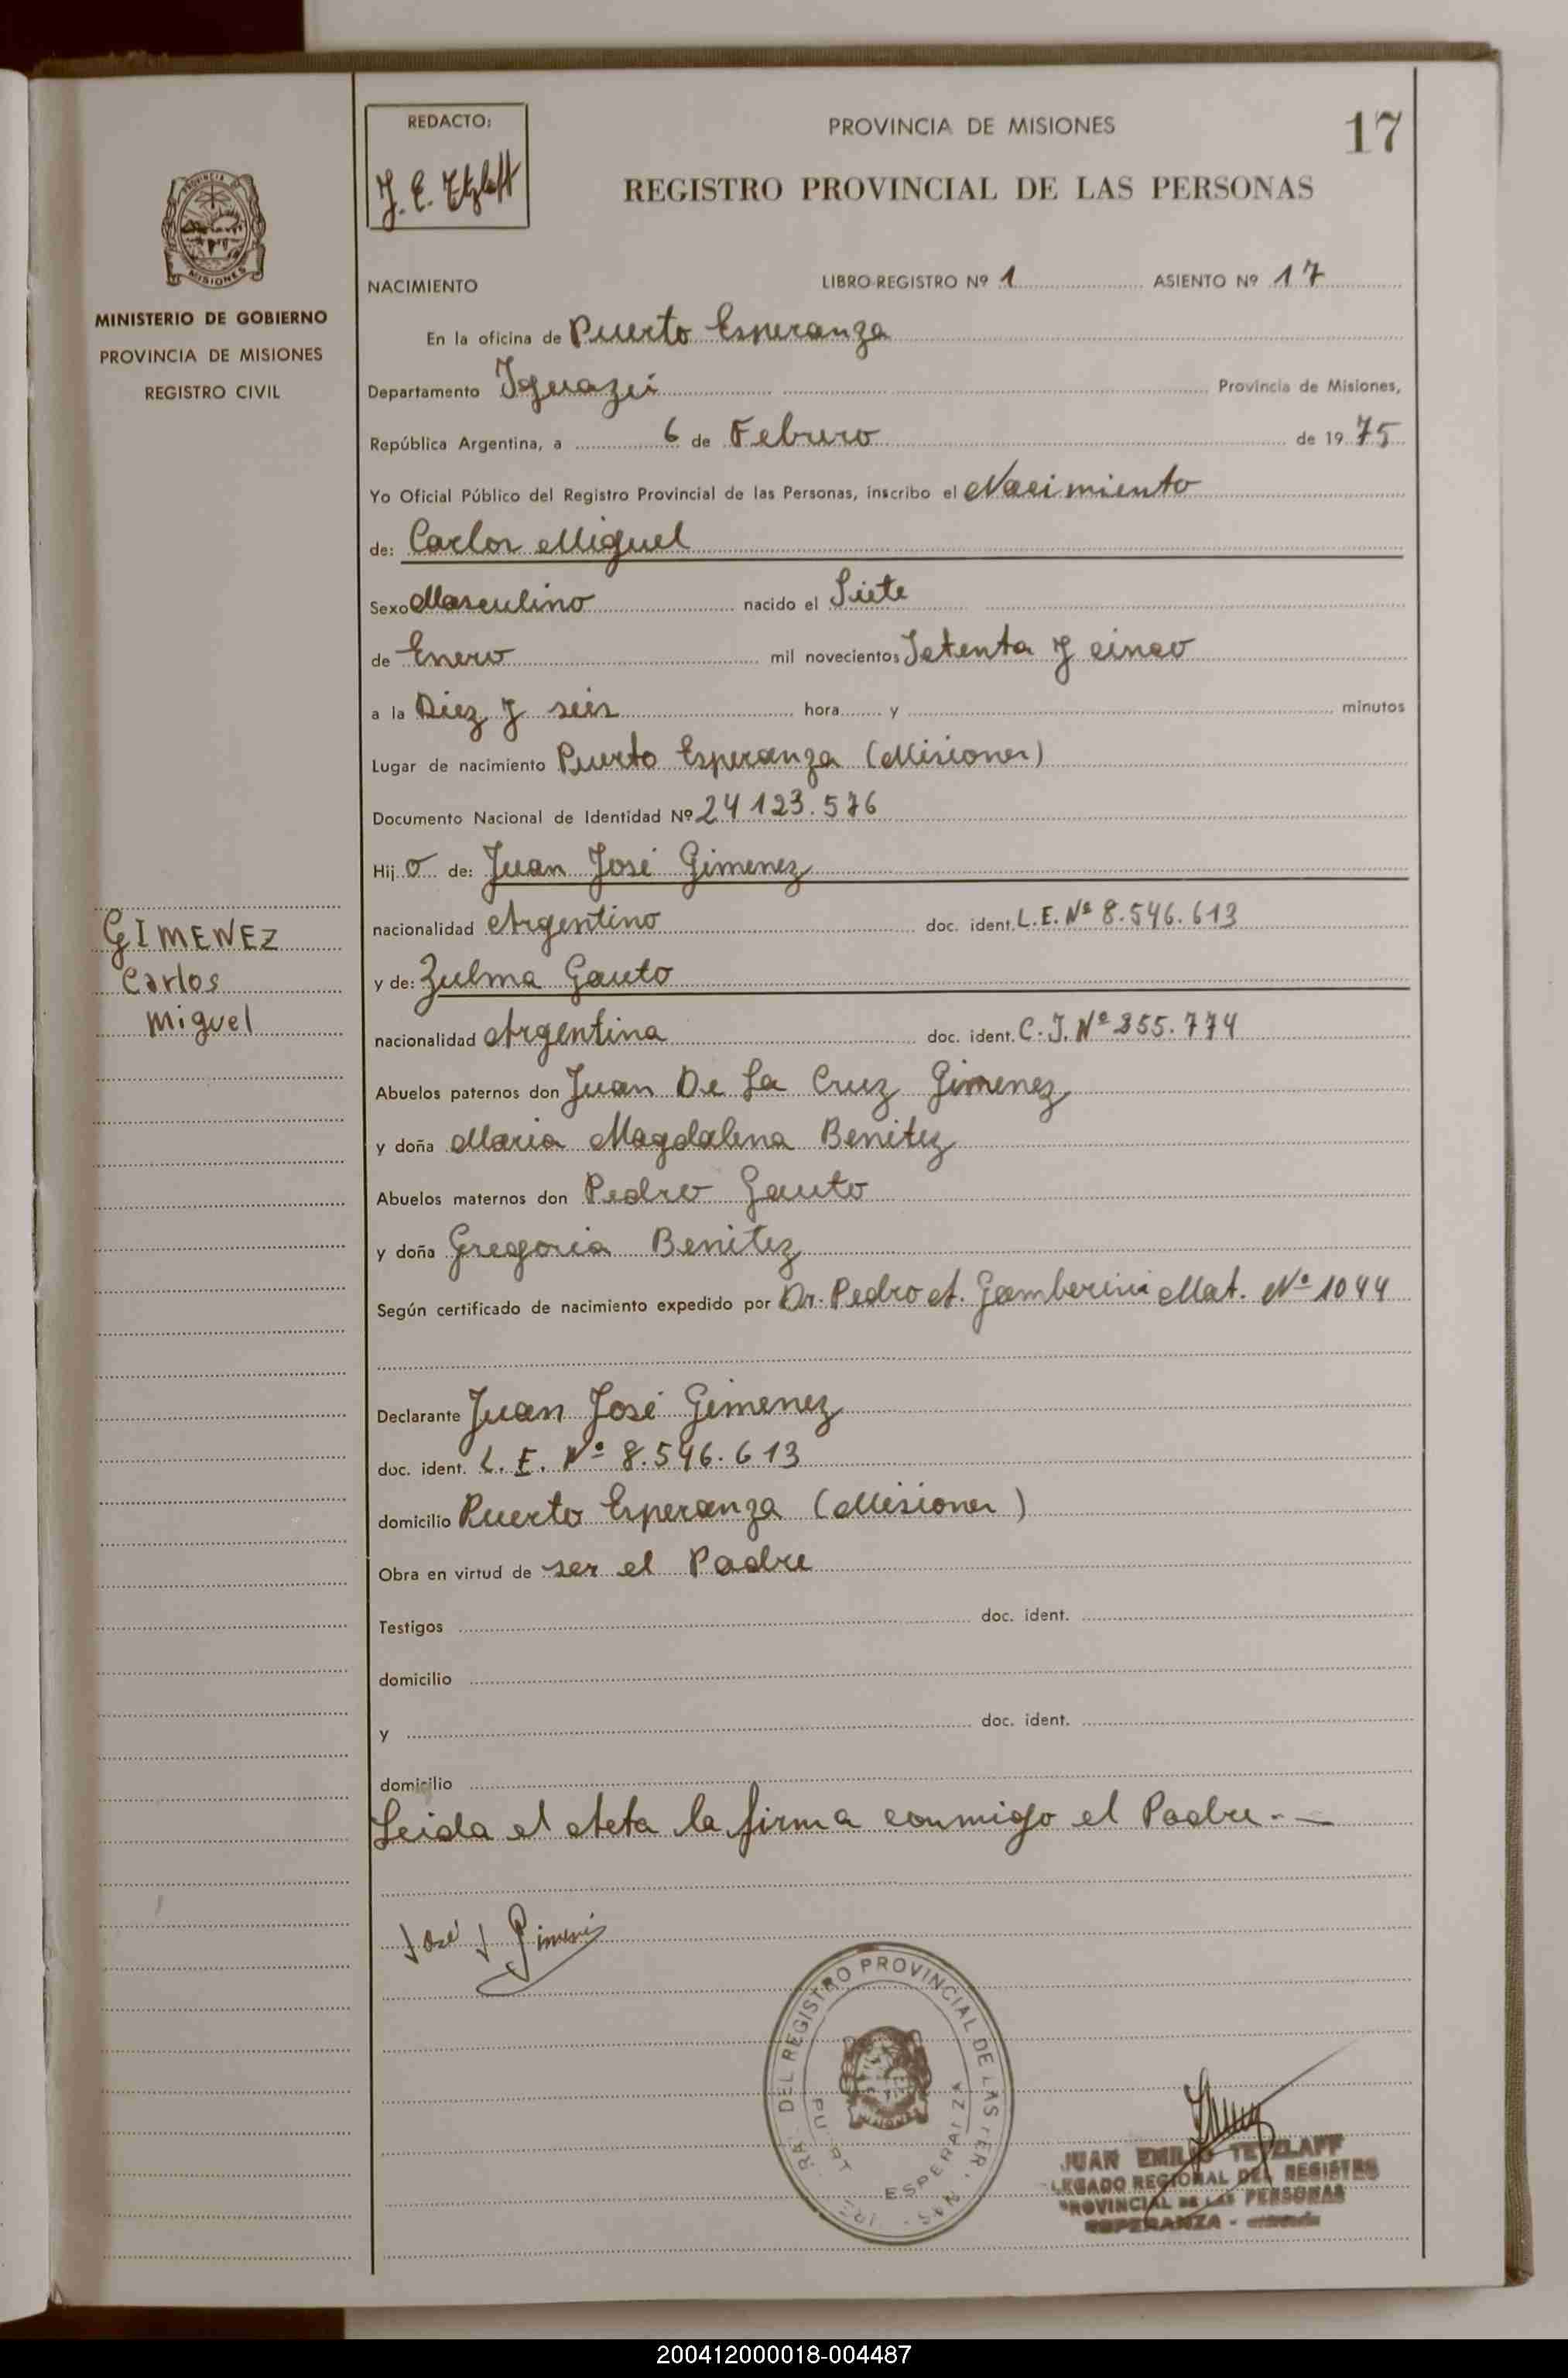 REDACTO:
J. E. Tetzlaff
PROVINCIA DE MISIONES
17
REGISTRO PROVINCIAL DE LAS PERSONAS
PROVINCIA DE
MISIONES
MINISTERIO DE GOBIERNO
PROVINCIA DE MISIONES
REGISTRO CIVIL
NACIMIENTO LIBRO REGISTRO Nº 1 ASIENTO Nº 17
En la oficina de Puerto Esperanza
Departamento Iguazú Provincia de Misiones,
República Argentina, a 6 de Febrero de 19 75
Yo Oficial Público del Registro Provincial de las Personas, inscribo el Nacimiento
de: Carlos Miguel
Sexo Masculino nacido el Siete
de Enero mil novecientos Setenta y cinco
a la Diez y seis hora y minutos
Lugar de nacimiento Puerto Esperanza (Misiones)
Documento Nacional de Identidad Nº 24 123.576
Hij o de: Juan José Gimenez
nacionalidad Argentino doc. ident. L.E. Nº 8.546.613
y de: Zulma Gauto
nacionalidad Argentina doc. ident. C.I. Nº 355.774
GIMENEZ
Carlos
Miguel
Abuelos paternos don Juan De La Cruz Gimenez
y doña Maria Magdalena Benitez
Abuelos maternos don Pedro Gauto
y doña Gregoria Benitez
Según certificado de nacimiento expedido por Dr. Pedro A. Gamberini Mat. Nº 1044
Declarante Juan José Gimenez
doc. ident. L. E. Nº 8.546.613
domicilio Puerto Esperanza (Misiones)
Obra en virtud de ser el Padre
Testigos doc. ident.
domicilio
y doc. ident.
domicilio
Leida el Acta la firma conmigo el Padre.-
José J Gimenez
DEL REGISTRO PROVINCIAL DE LAS
ESPERANZA
JUAN EMILIO TETZLAFF
LEGADO REGIONAL DEL REGISTRO
PROVINCIAL DE LAS PERSONAS
ESPERANZA -
200412000018-004487